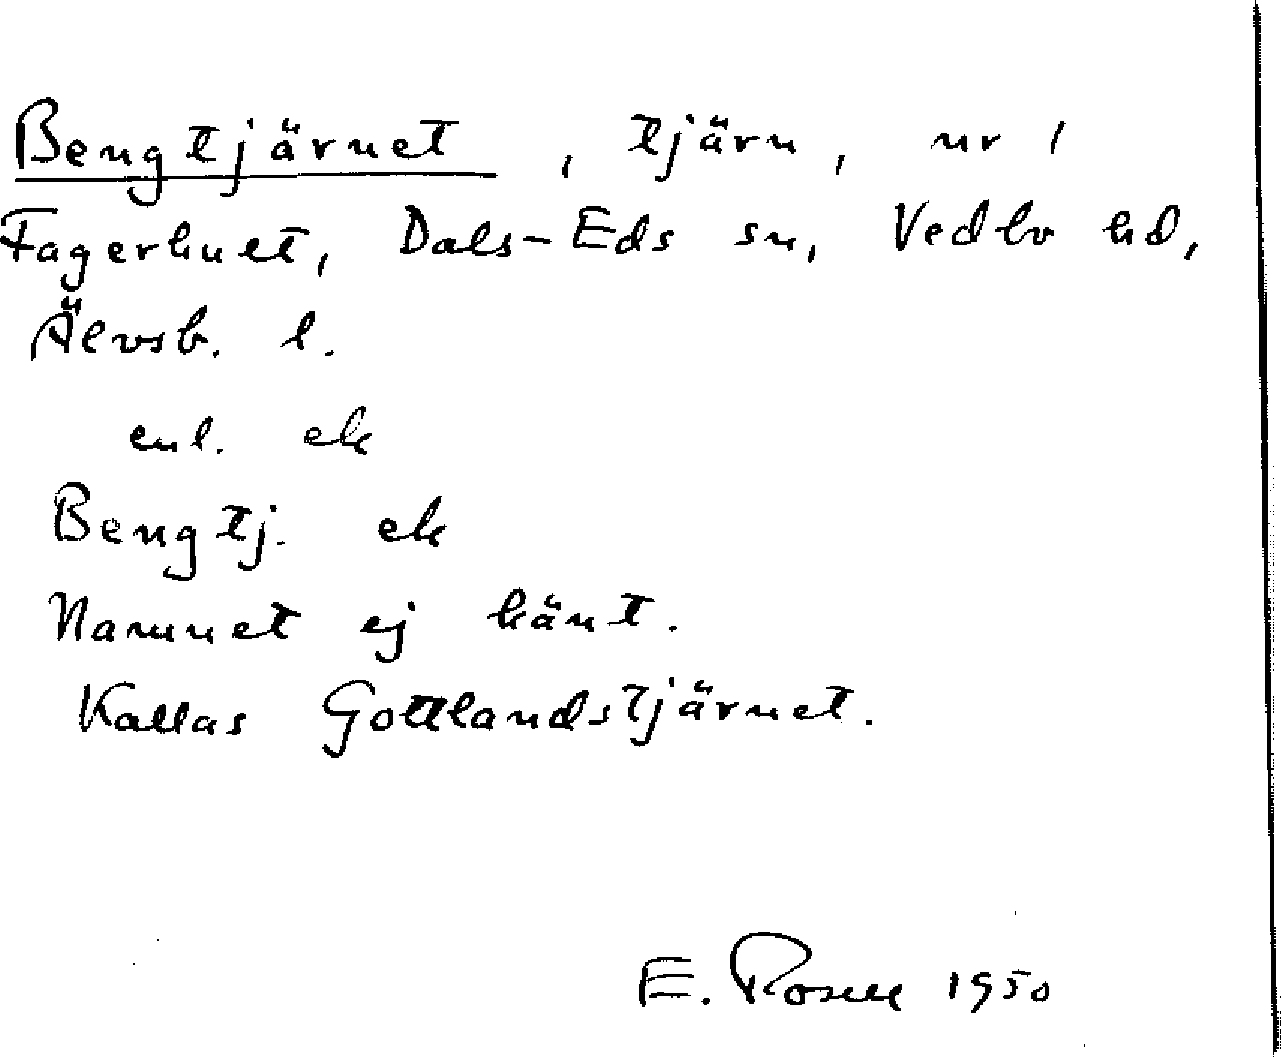 Bengtjärnet, tjärn, nr 1
Fagerhult, Dals-Eds sn, Vedbo hd,
Älvsb. l.
enl. ek
Bengtj. ek
Namnet ej känt.
Kallas Gottlandstjärnet.
E. Rosell 1950